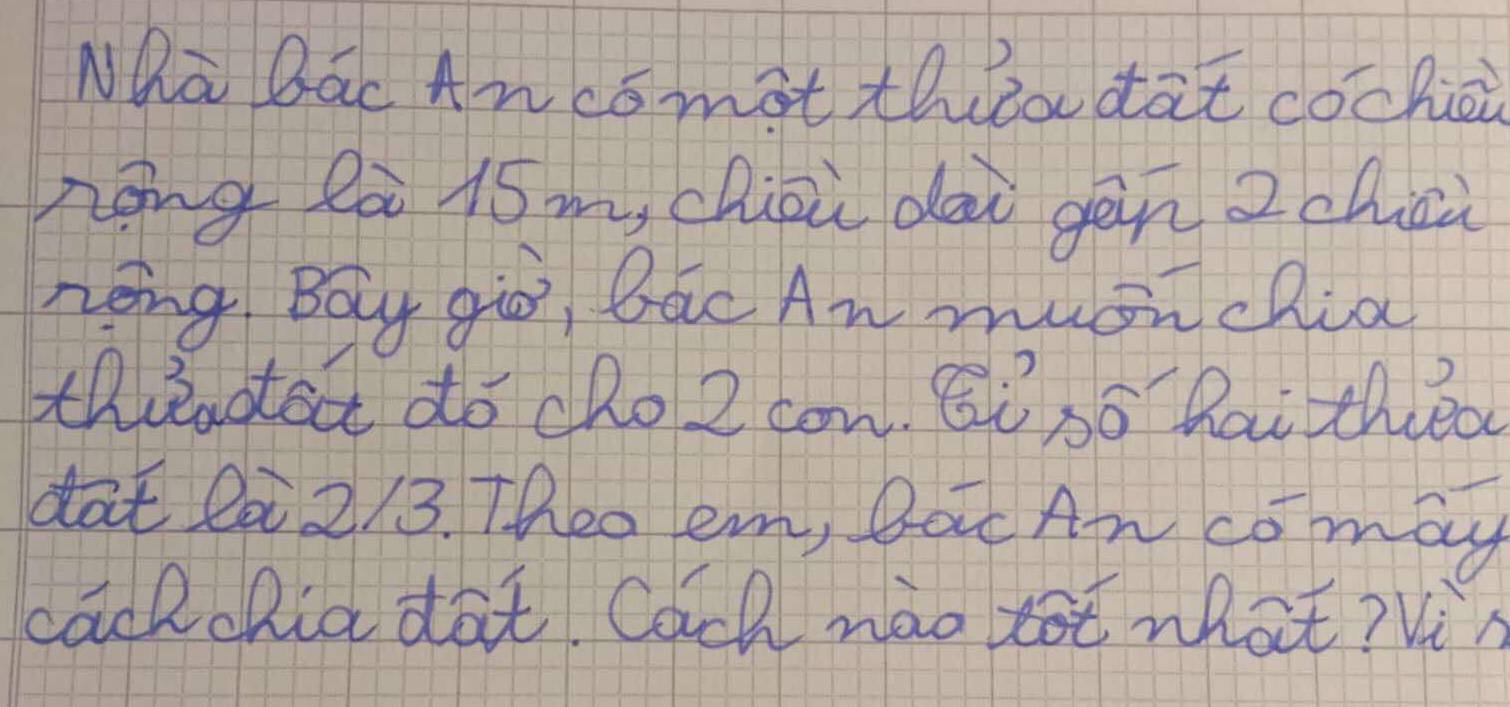 Nhà bác An có một thửa đất có chiều
rộng là 15m, chiều dài gấp 2 chiều
rộng. Bây giờ, bác An muốn chia
thửa đất đó cho 2 con. Tỉ số hai thửa
đất là 2/3. Theo em, bác An có mấy
cách chia đất. Cách nào tốt nhất? Vì